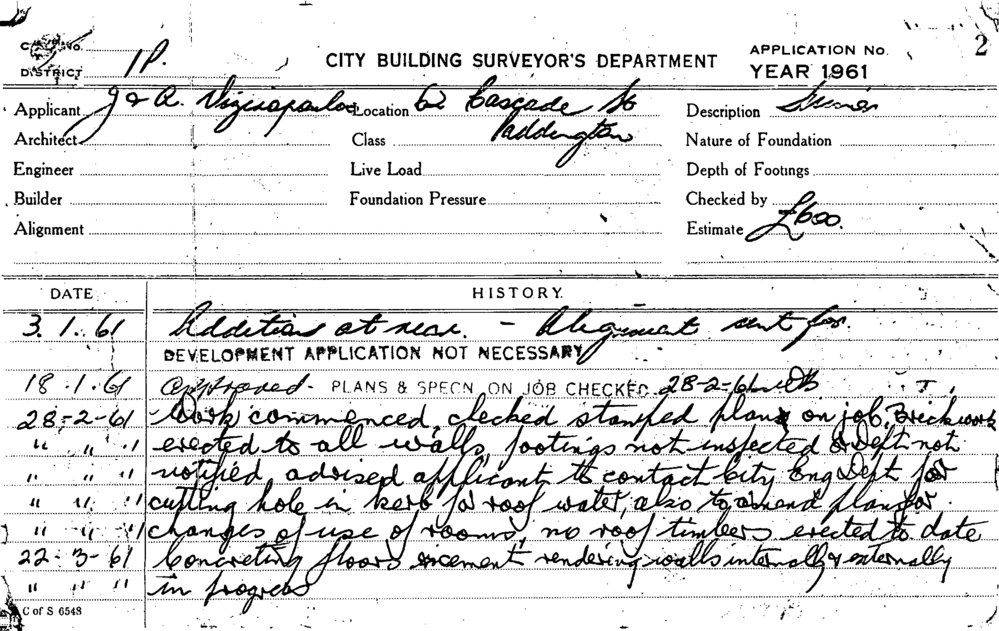 CITY BUILDING SURVEYOR'S DEPARTMENT
APPLICATION No.
2
DISTRICT 1P.
YEAR 1961
Applicant J & A. Location 62 Cascade St Paddington
Description
Architect
Class
Nature of Foundation
Engineer
Live Load
Depth of Footings
Builder
Foundation Pressure
Checked by
Alignment
Estimate £600.
DATE HISTORY.
3.1.61 Additions at rear. - Alignment sent for.
DEVELOPMENT APPLICATION NOT NECESSARY
18.1.61 Approved. PLANS & SPECN. ON JOB CHECKED 28-2-61
28-2-61 Work commenced, checked stamped plans on job, Brickwork
" " " erected to all walls, footings not inspected & Dept not
" " " notified advised applicant to contact City Eng Dept for
" " " cutting hole in kerb for roof water, also to amend plan for
" " " changes of use of rooms, no roof timbers erected to date
22-3-61 Concreting floors cement rendering walls internally & externally
" " " in progress
C of S 6548